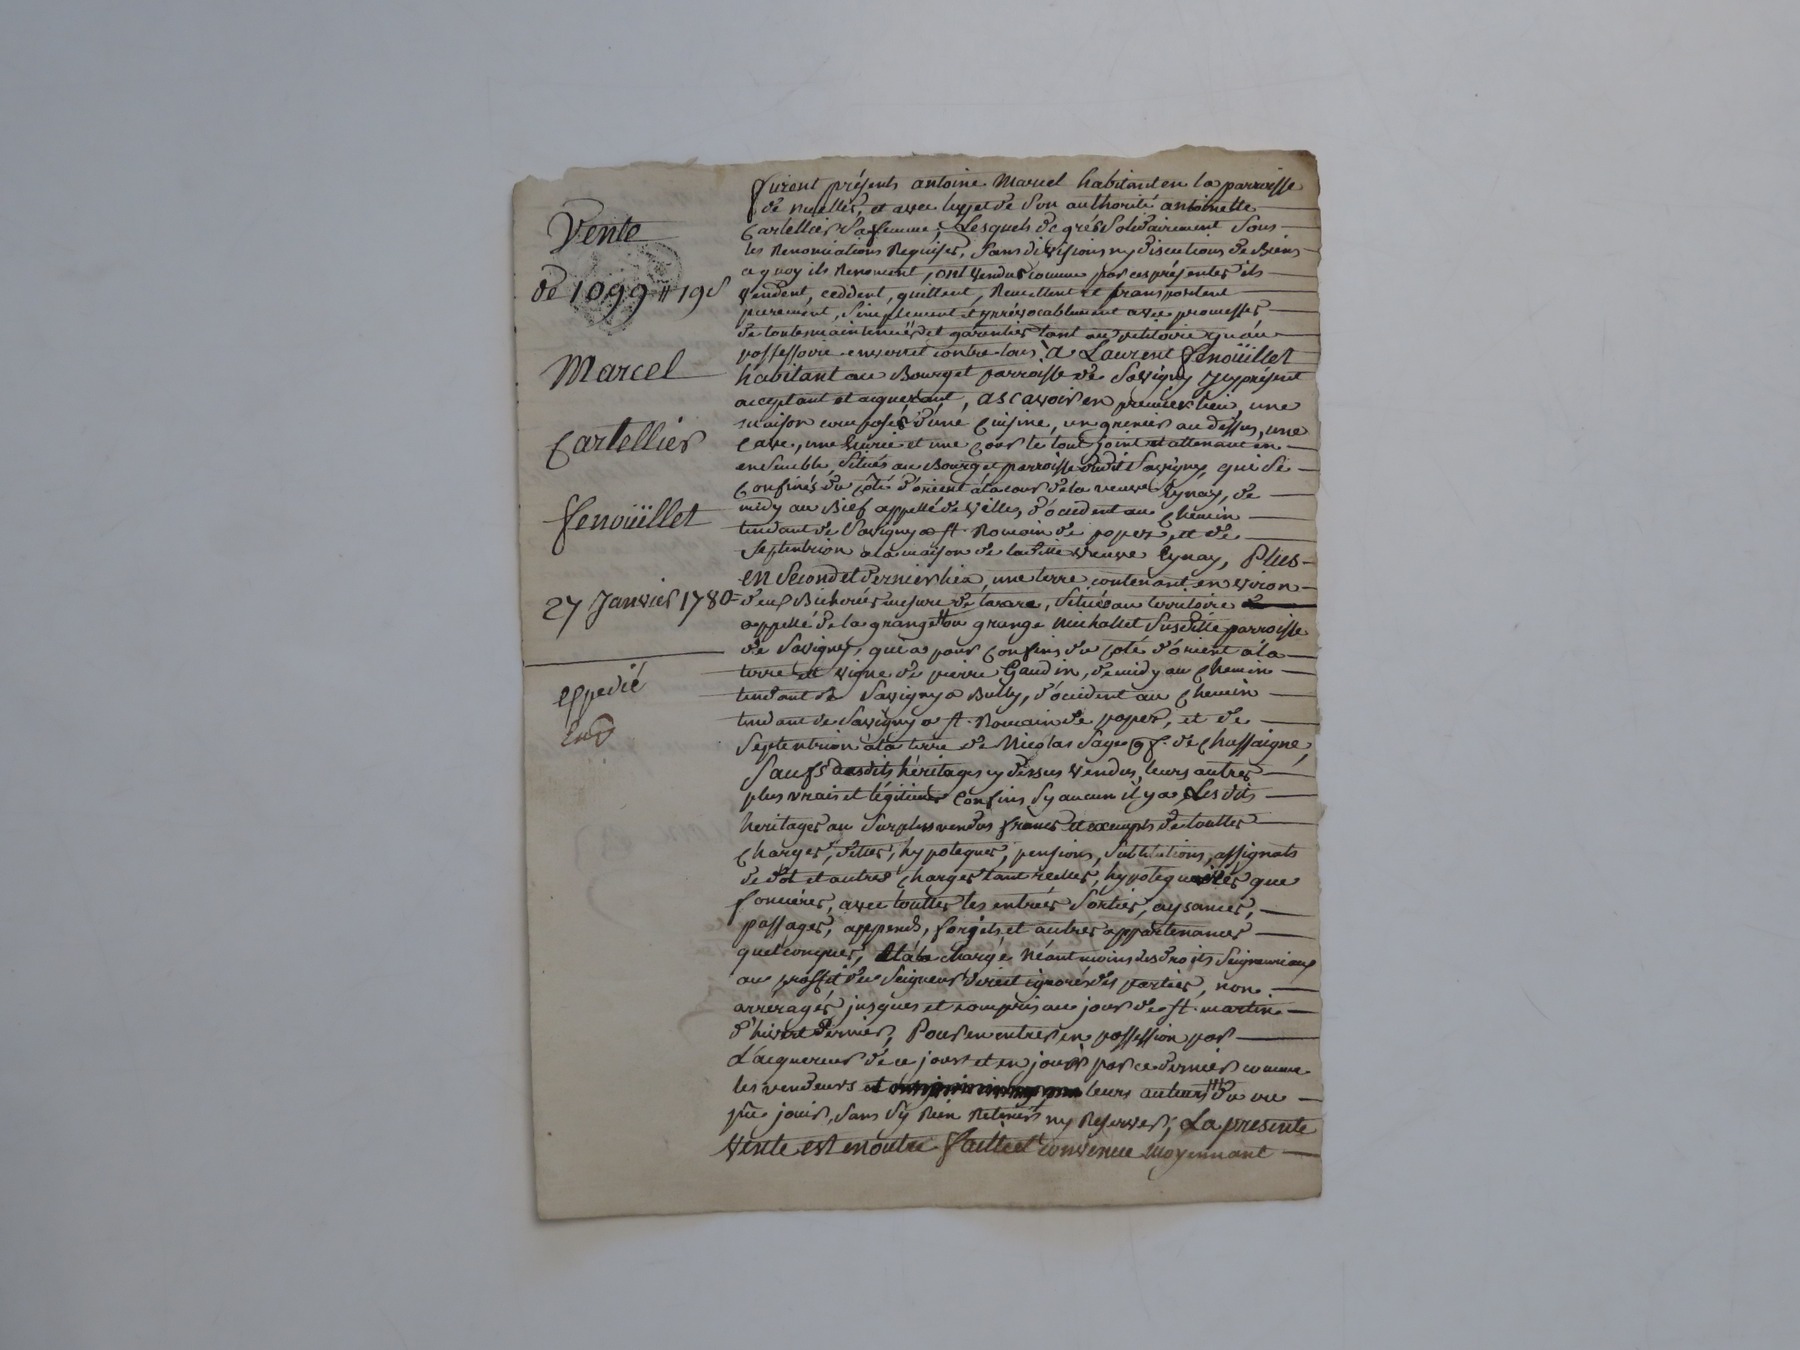 Vente
de 1099 ₶ 19 s
Marcel
Cartellier
fenoüillet
27 Janvier 1780
Expedié
furent présents antoine Marcel habitant en la parroisse
de nuelles, et avec luy et de son authorité antoinette
Cartellier sa femme, Lesquels de grés Solidairement Sous
les Renonciations Requises, Sans divisions ny discutions de biens
a quoy ils Renoncent, ont vendus comme par ces présentes ils
vendent, ceddent, quittent, Remettent et transportent
purement, Simplement et yrrévocablement avec promesses
de toutes maintenües et garenties tant au petitoire qu'au
possessoire envers et contre tous, a Laurent fenoüillet
habitant au Bourg et parroisse de Savigny Icy présent
acceptant et aquerant, ascavoir en premier lieu, une
maison composés d'une Cuisine, un grenier au dessus, une
Cave, une Ecurie et une Cour le tout joint et attenant en
ensemble, Situés au Bourg et parroisse dudit Savigny, qui Se
Confinés du côté d'orient à la cour de la veuve Eynay, de
midy au Bief appellé de villes, d'occident au Chemin
tendant de Savigny a st. Romain de popez, et de
Septentrion a la maison de laditte veuve Eynay, Plus
en Second et dernier lieu, une terre contenant environ
deux Bicherées mesure de tarare, Située au territoire
appellé de la grange ou grange Michallet Susditte parroisse
de Savigny, qui a pour Confins du côté d'orient à la
terre et vigne de pierre Gaudin, de midy au Chemin
tendant de Savigny a Bully, d'occident au Chemin
tendant de Savigny a st. Romain de popez, et de
Septentrion à la terre de Nicolas Saye de Chassaigne,
Saufs desdits héritages cy dessus vendus, leurs autres
plus vrais et légitimes Confins Sy aucun il y a Lesdits
heritages au Surplus vendus francs et exempts de touttes
Charges, dettes, hypoteques, pensions, Substitutions, assignats
de dot et autres Charges tant reelles, hypotequaires que
foncières, avec touttes les entrées Sorties, aysances,
passages, appends, forgets et autres appartenances
quelconques, et à la Charge Néantmoins des droits Seigneuriaux
au proffit du Seigneur direct ignoré des parties, non
arreragés jusques et compris au jour de st. martin
d'hiver dernier, Pour en entrer en possession par
L'acquereur de ce jour et en jouir par ce dernier comme
les vendeurs et leurs auteurs du
jouir, Sans S'y Rien Retenir ny Reserver, La presente
Vente est en outre faitte et convenue Moyennant